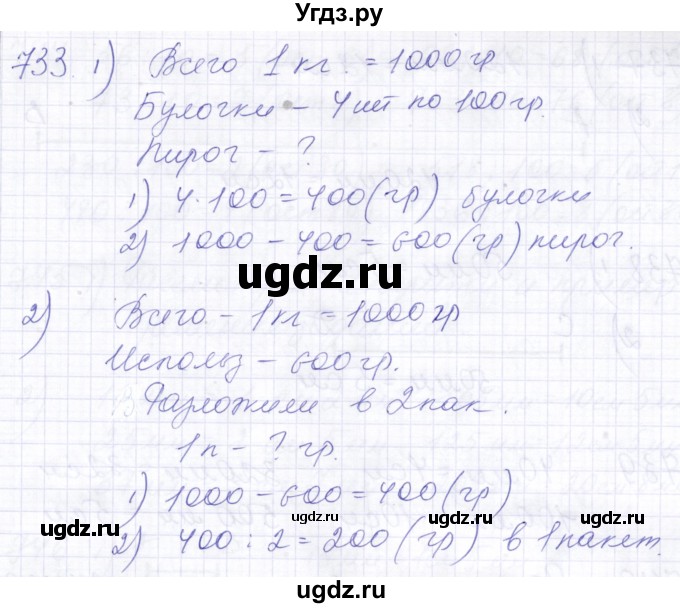 Угдз.ру
733 1) Всего 1 кг = 1000 гр
Булочки - 4 шт по 100 гр.
Пирог - ?
1) 4 · 100 = 400 (гр) булочки
2) 1000 - 400 = 600 (гр) пирог.
ugdz.ru ugdz.ru
2) Всего - 1 кг = 1000 гр
Использ - 600 гр.
Разложили в 2 пак.
1 п - ? гр.
1) 1000 - 600 = 400 (гр)
ugdz.ru ugdz.ru ugdz.ru
2) 400 : 2 = 200 (гр) в 1 пакет.
ugdz.ru